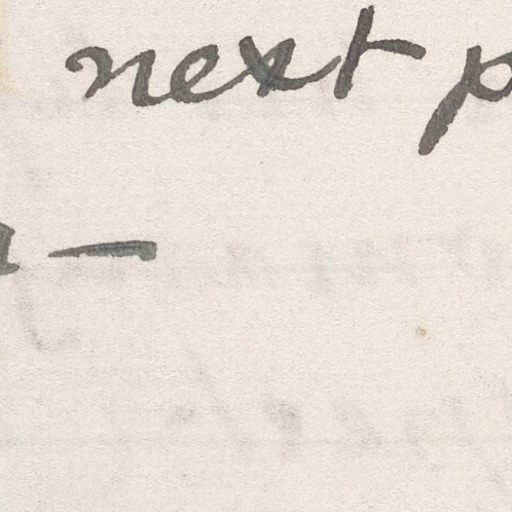 next p
—